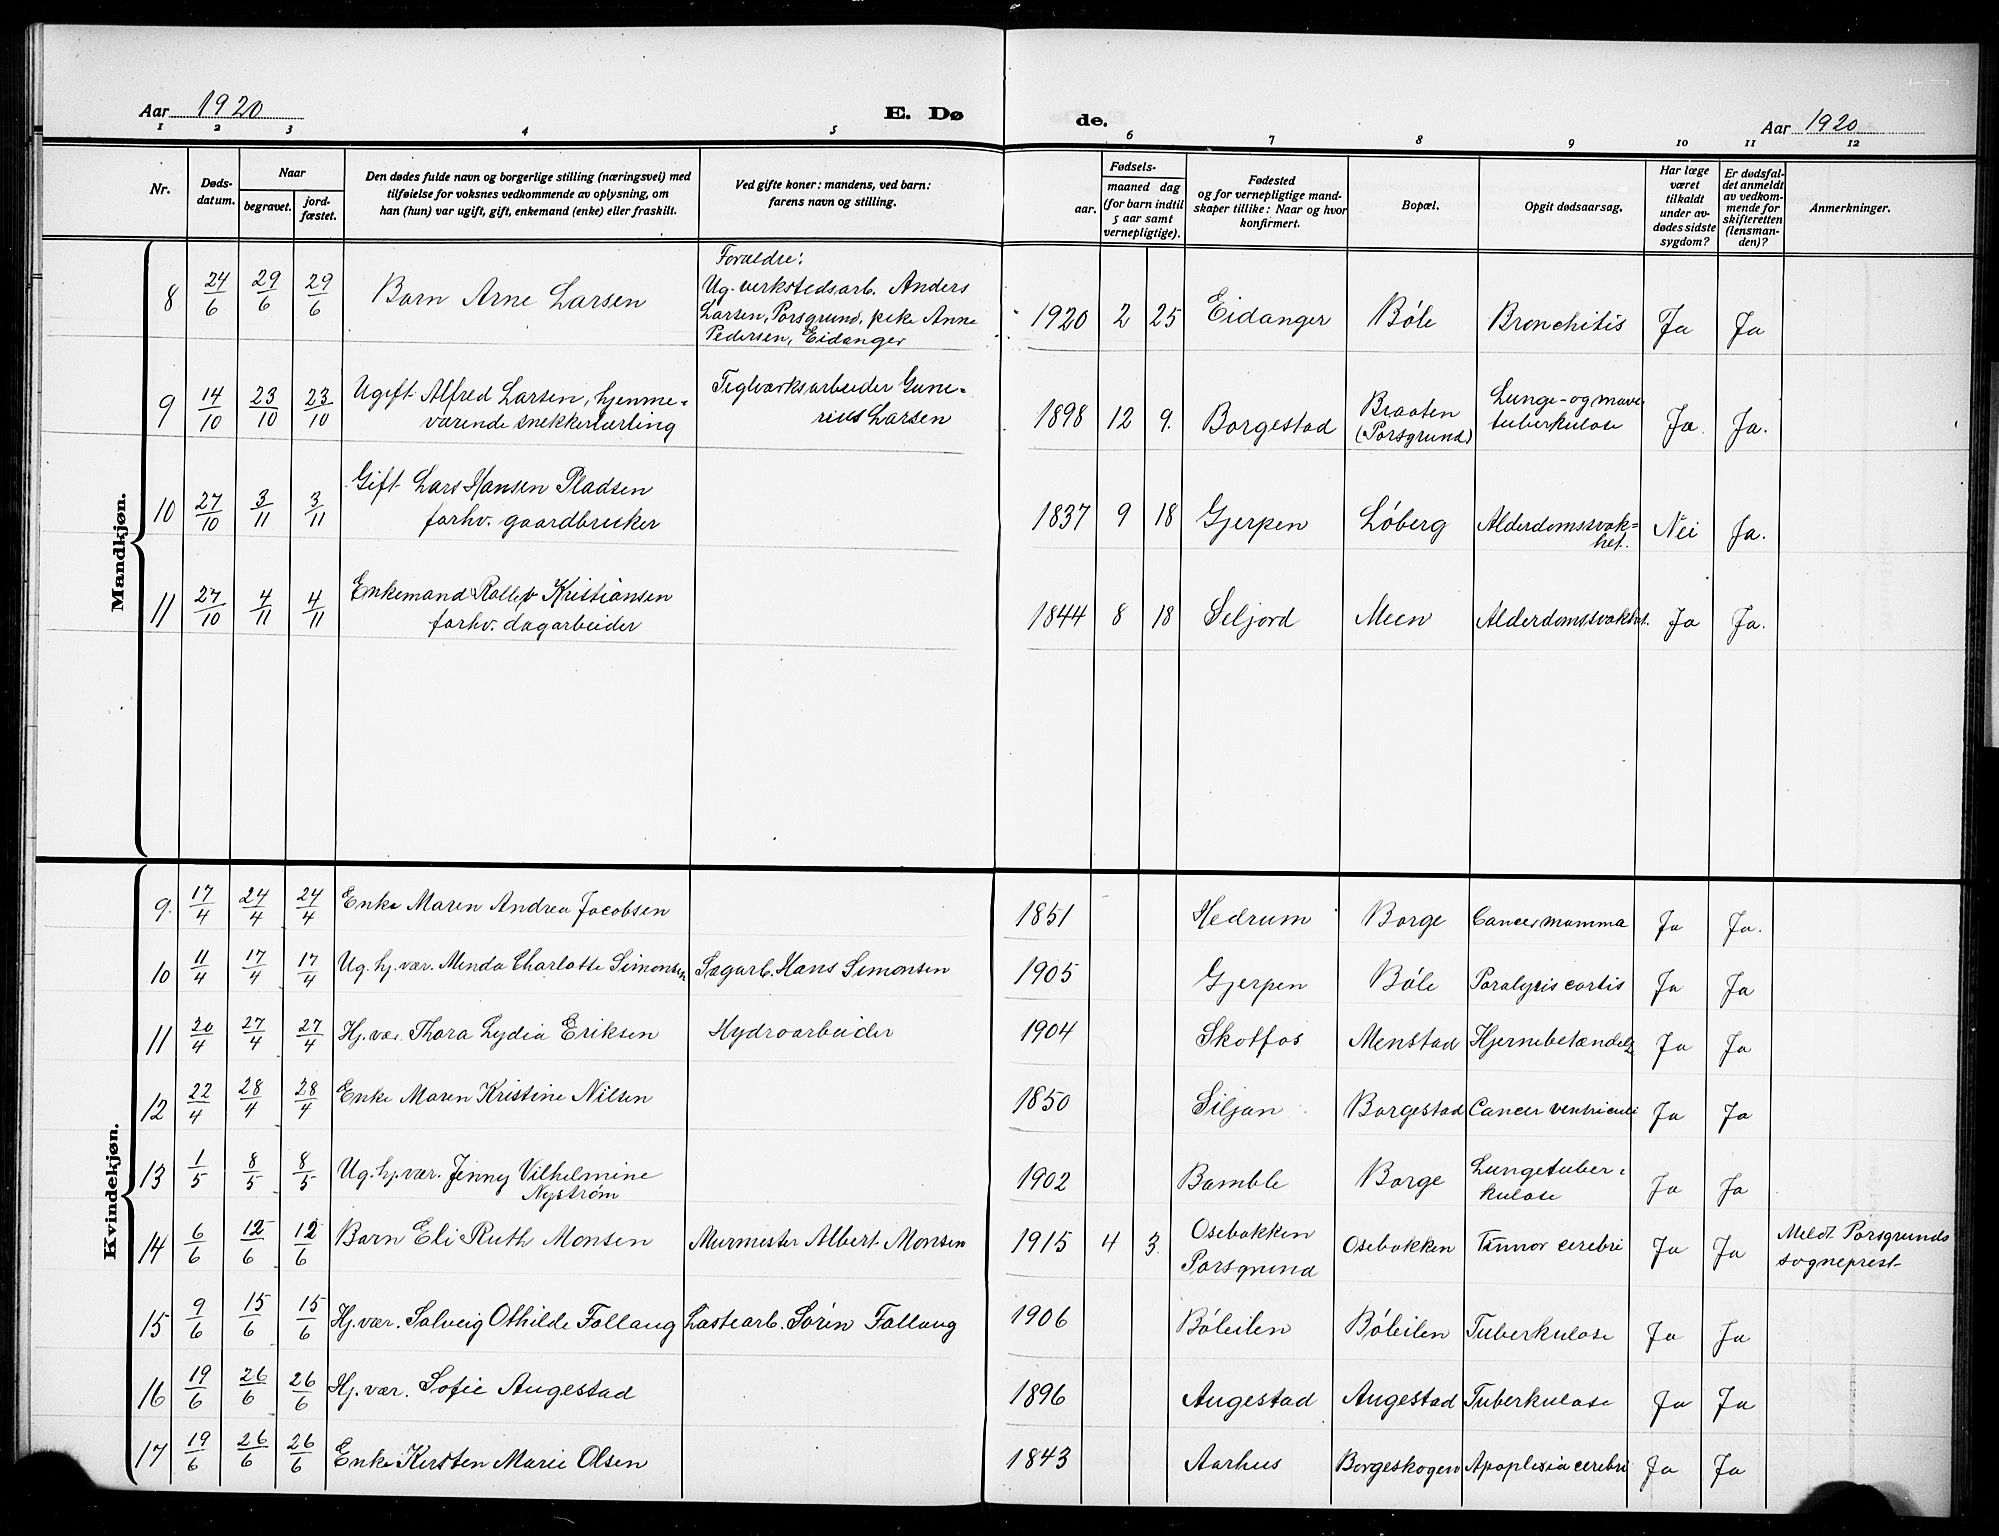 Aar 1920 E. Dø de. Aar 1920
1 2 3 4 5 6 7 8 9 10 11 12
Nr. Døds-datum. Naar begravet. jord-fæstet. Den dødes fulde navn og borgerlige stilling (næringsvei) med tilføielse for voksnes vedkommende av oplysning, om han (hun) var ugift, gift, enkemand (enke) eller fraskilt. Ved gifte koner: mandens, ved barn: farens navn og stilling. Fødsels- aar. maaned dag (for barn indtil 5 aar samt vernepligtige). Fødested og for vernepligtige mandskaper tillike: Naar og hvor konfirmert. Bopæl. Opgit dødsaarsag. Har læge været tilkaldt under avdødes sidste sygdom? Er dødsfaldet anmeldt av vedkommende for skifteretten (lensmanden)? Anmerkninger.
Mandkjøn.
8 24/6 29/6 29/6 Barn Arne Larsen Foraldre: Ug. verkstedsarb. Anders Larsen, Porsgrund, pike Anne Pedersen, Eidanger 1920 2 25 Eidanger Bøle Bronchitis Ja Ja
9 14/10 23/10 23/10 Ugift Alfred Larsen, hjemme=værende snekkerlærling Teglværksarbeider Gune=rius Larsen 1898 12 9. Borgestad Braaten (Porsgrund) Lunge- og mave tuberkulose Ja. Ja.
10 27/10 3/11 3/11 Gift Lars Hansen Pladsen forhv. gaardbruker 1837 9 18 Gjerpen Løberg Alderdomssvak=het. Nei Ja.
11 27/10 4/11 4/11 Enkemand Rollef Kristiansen forhv. dagarbeider 1844 8 18 Seljord Meen Alderdomssvakhet. Ja Ja.
Kvindekjøn.
9. 17/4 24/4 24/4 Enke Maren Andrea Jacobsen 1851 Hedrum Borge Cancer mamma Ja Ja.
10 11/4 17/4 17/4 Ug. hj. vær. Minda Charlotte Simonsen Sagarb. Hans Simonsen 1905 Gjerpen Bøle Paralysis cortis Ja Ja
11 20/4 27/4 27/4 Hj. vær. Thora Lydia Eriksen Hydroarbeider 1904 Skotfos Menstad Hjernebetændelse Ja Ja
12 22/4 28/4 28/4 Enke Maren Kristine Nilsen 1850 Siljan Borgestad Cancer ventriculi Ja Ja
13 1/5 8/5 8/5 Ug. hj. vær. Jenny Vilhelmine Nystrøm 1902 Bamble Borge Lungetuberkulose Ja Ja
14 6/6 12/6 12/6 Barn Eli Ruth Monsen Murmester Albert Monsen 1915 4 3. Osebakken Porsgrund Osebakken cerebri Ja Ja Meldt Porsgrunds sogneprest
15 9/6 15/6 15/6 Hj. vær. Solveig Othilde Follaug Lastearb. Sørin Follaug 1906 Bøleilen Bøleilen Tuberkulose Ja Ja
16 19/6 26/6 26/6 Hj. vær. Sofie Augestad 1896 Augestad Augestad Tuberkulose Ja Ja
17 19/6 26/6 26/6 Enke Kirsten Marie Olsen 1843 Aarhus Borgeskogen Apoplexia cerebri Ja Ja